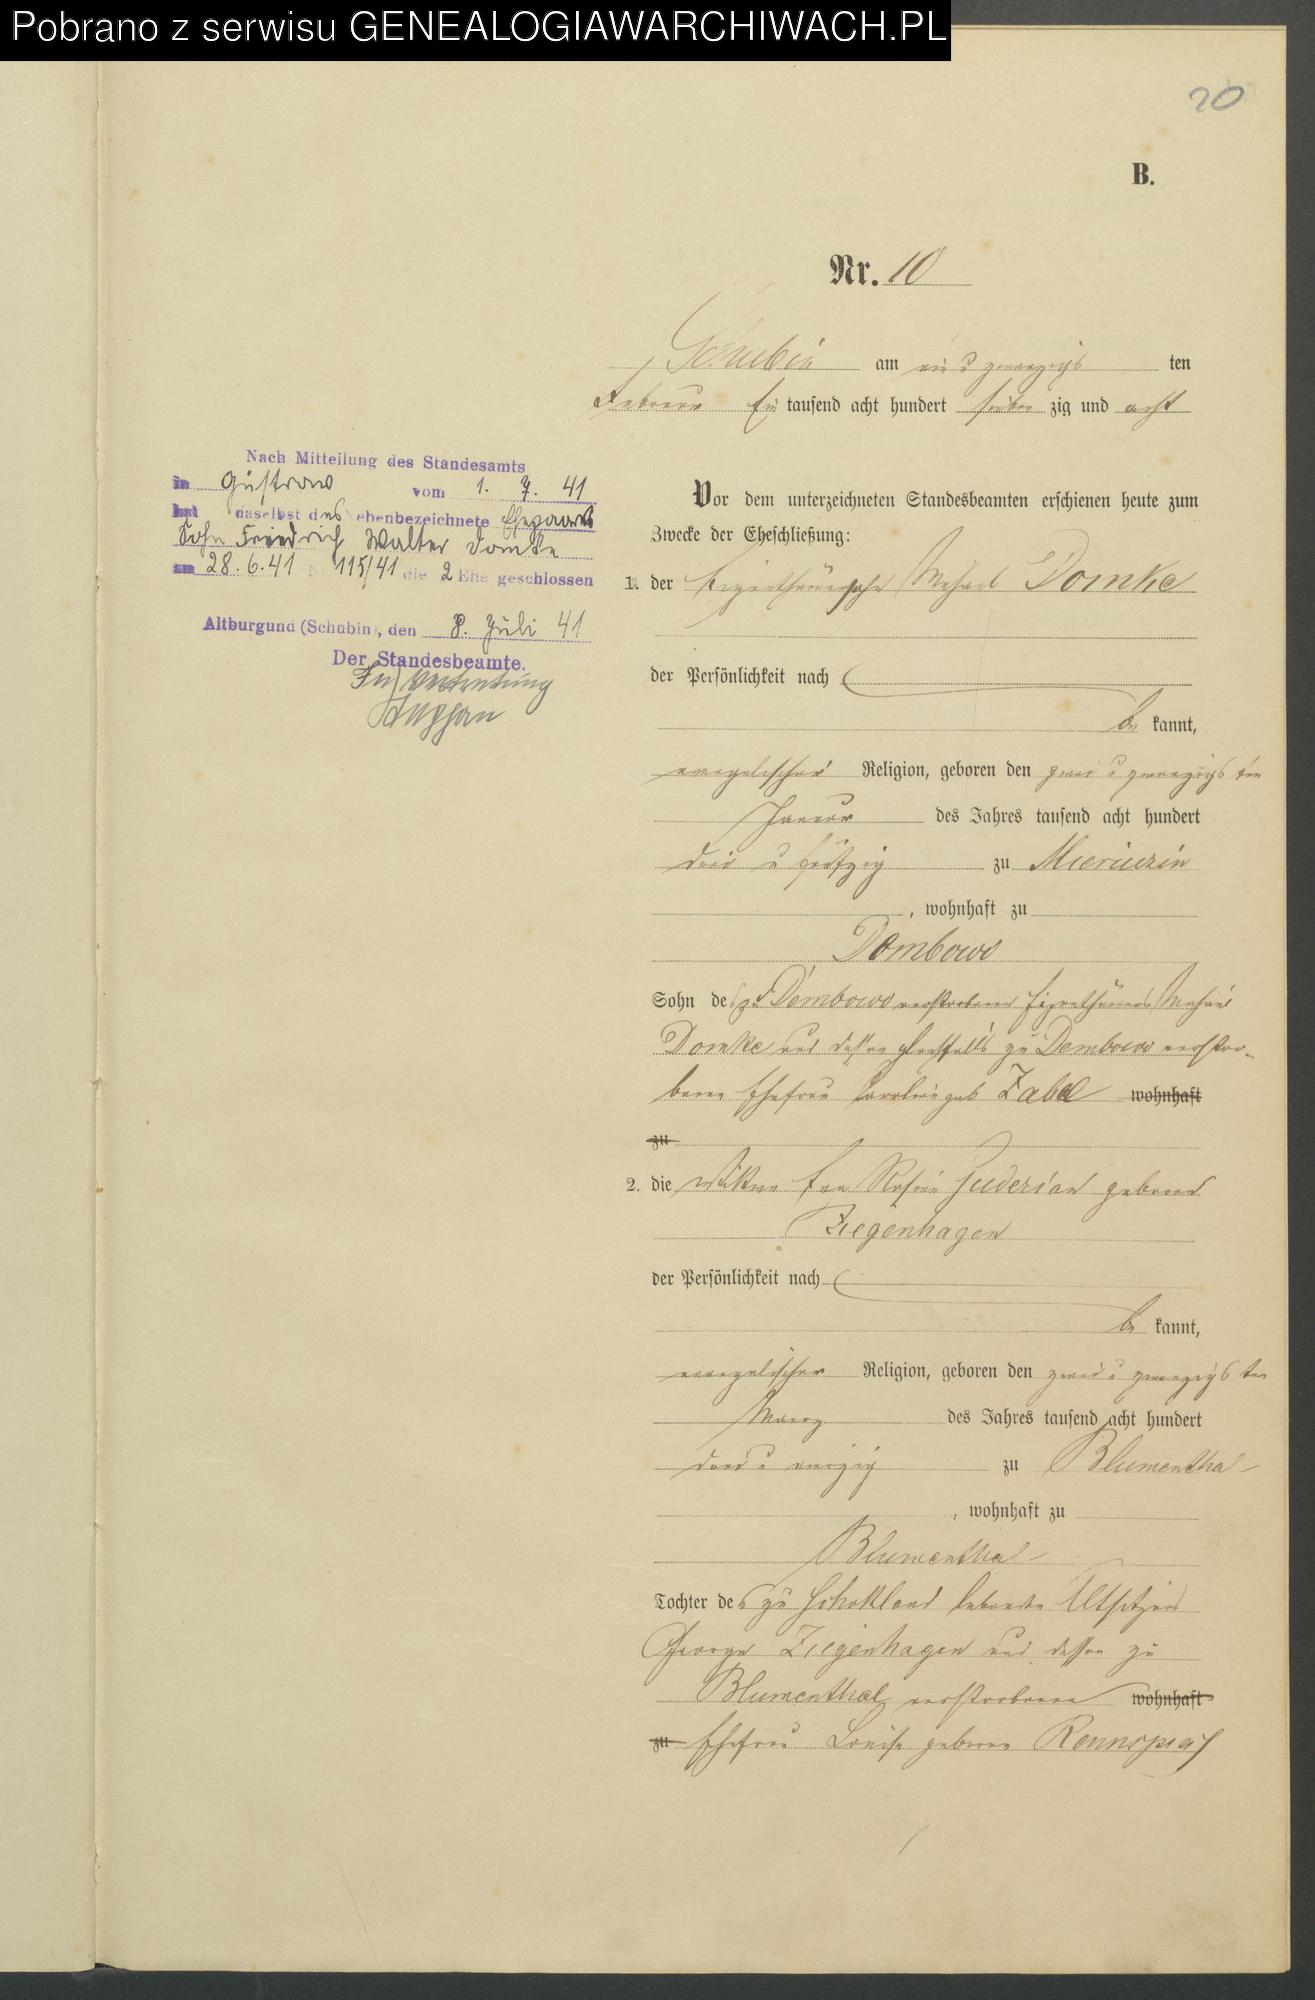 Pobrano z serwisu GENEALOGIAWARCHIWACH.PL
20
B.
Nr. 10
Schubin am ein u zwanzigs ten
Februar Ein tausend acht hundert sieben zig und acht
Nach Mitteilung des Standesamts
in Güstrow vom 1. 7. 41
hat daselbst des nebenbezeichnete Ehepaares
Sohn Friedrich Walter Domke
am 28.6.41 Nr 115/41 die 2 Ehe geschlossen
Altburgund (Schubin), den 8. Juli 41
Der Standesbeamte.
In Vertretung
Vor dem unterzeichneten Standesbeamten erschienen heute zum
Zwecke der Eheschließung:
1. der Eigenthümersohn Michael Domke
der Persönlichkeit nach
be kannt,
evangelischer Religion, geboren den zwei u zwanzigs ten
Januar des Jahres tausend acht hundert
drei u fünfzig zu
, wohnhaft zu
Dombowo
Sohn des zu Dembowo verstorbenen Eigenthümers Michael
Domke und dessen ebenfalls zu Dembowo verstor-
benen Ehefrau Caroline geb Zabel wohnhaft
zu
2. die Wittwe Eva Rosine Guderian geborene
Ziegenhagen
der Persönlichkeit nach
be kannt,
evangelischer Religion, geboren den zwei u zwanzigs ten
Maerz des Jahres tausend acht hundert
drei u vierzig zu Blumenthal
, wohnhaft zu
Blumenthal
Tochter des zu Schokland lebenden Altsitzers
George Ziegenhagen und dessen zu
Blumenthal verstorbenen wohnhaft
zu Ehefrau Louise geborene